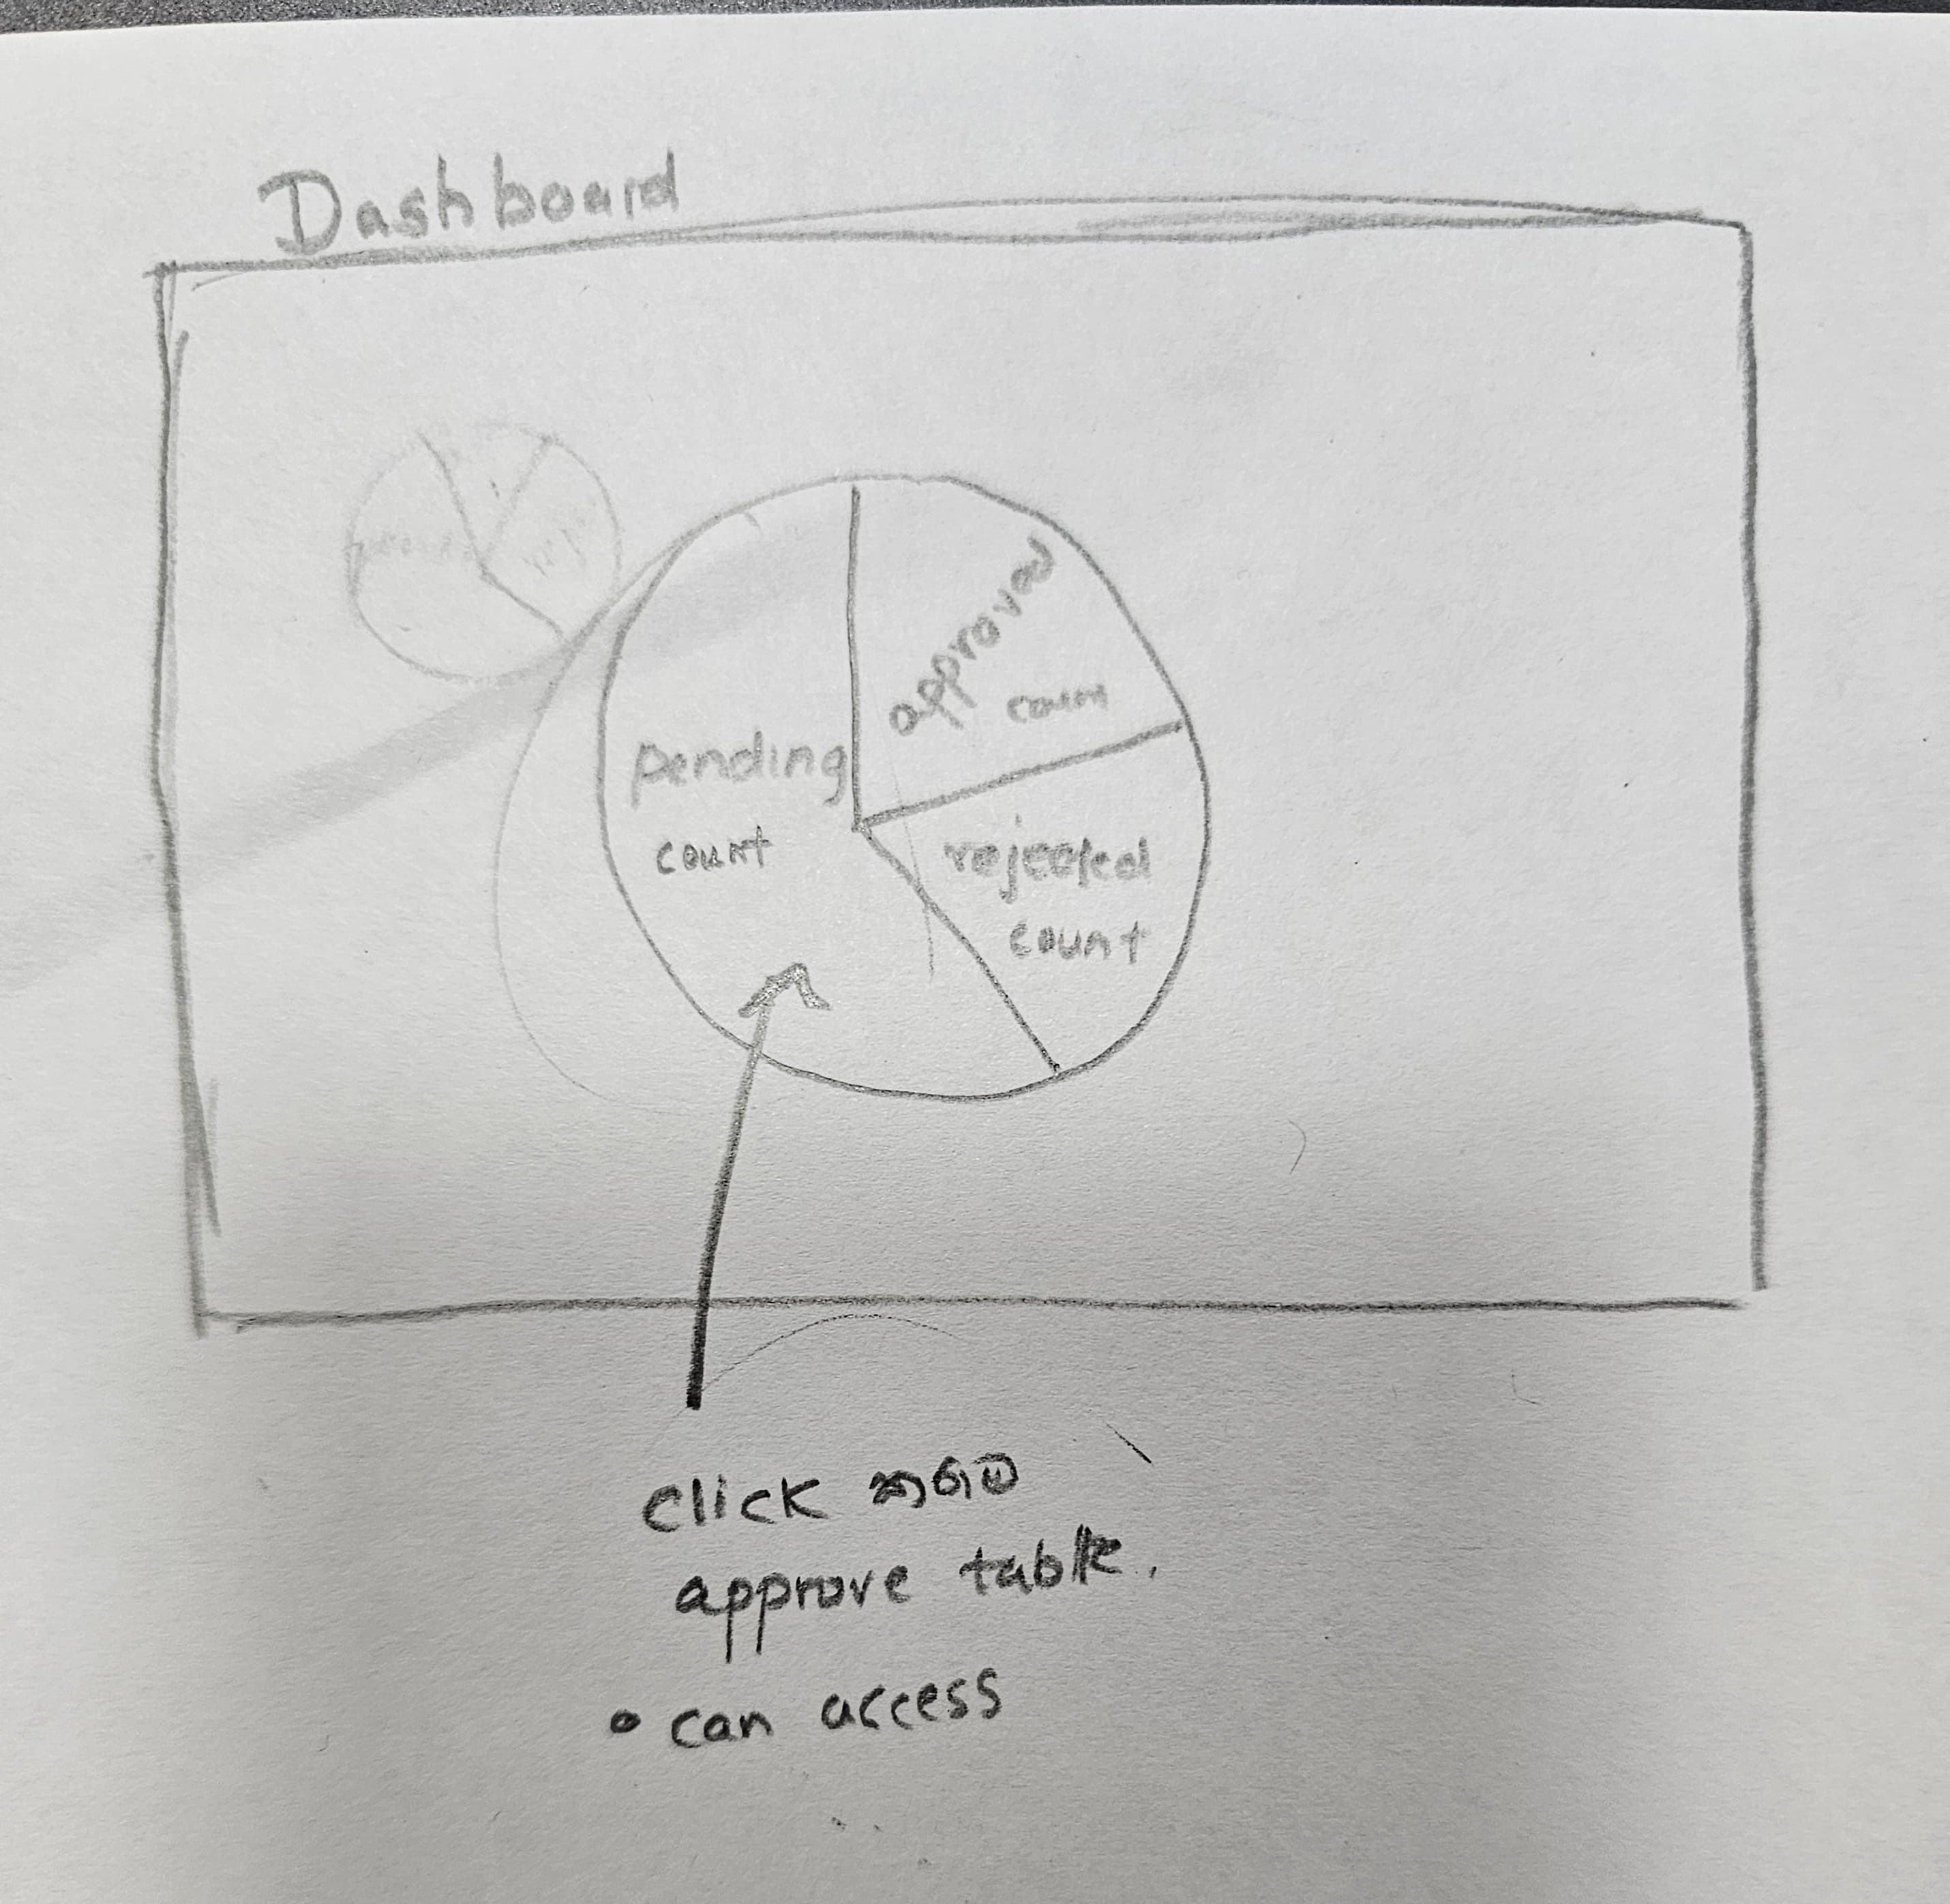 Dashboard
approved
count
pending
count
rejected
count
click කරාම
approve table.
• can access